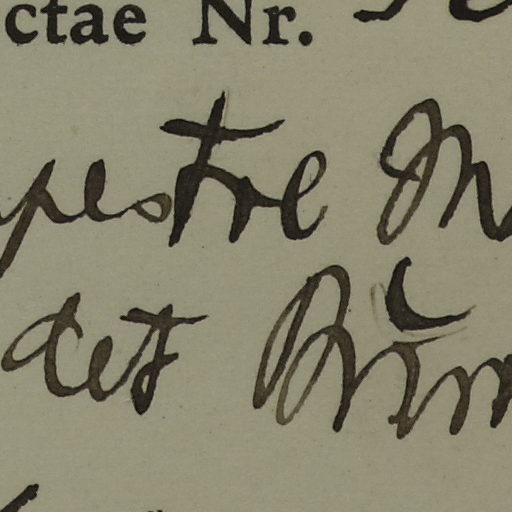 ctae Nr.
pestre M
det Brun